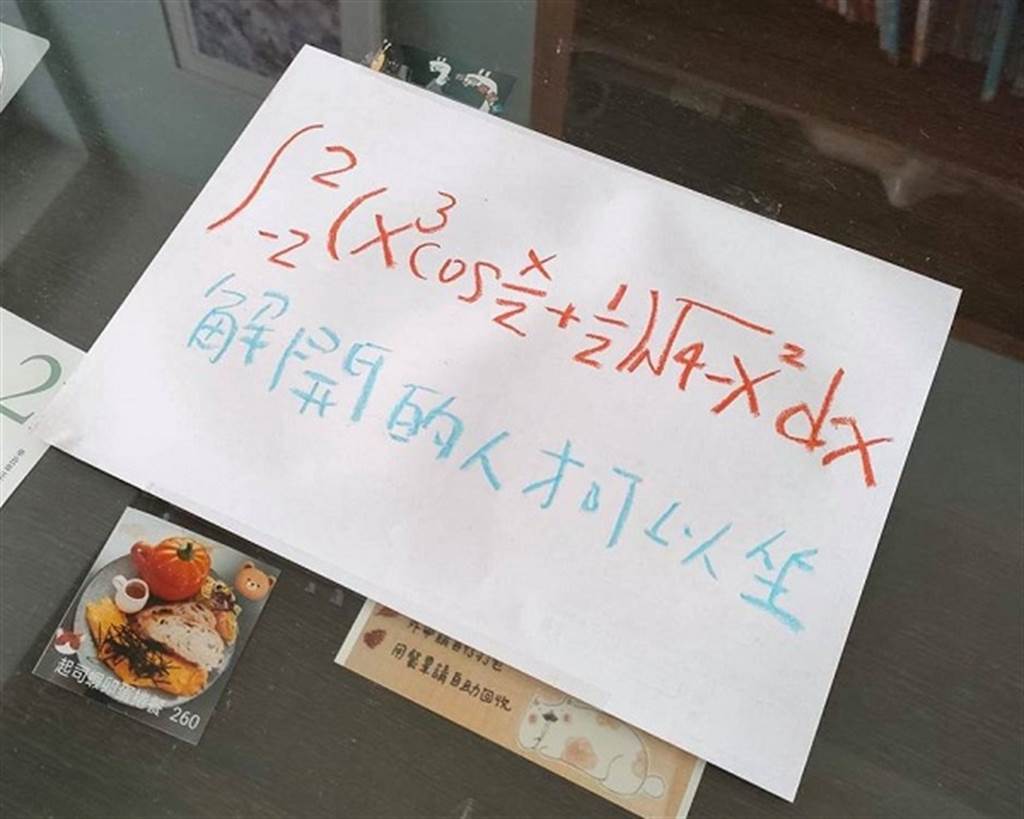 ∫₋₂² (x³ cos x/2 + 1/2)√4-x² dx
解開的人才可以坐
2
260
用餐畢請自助回收